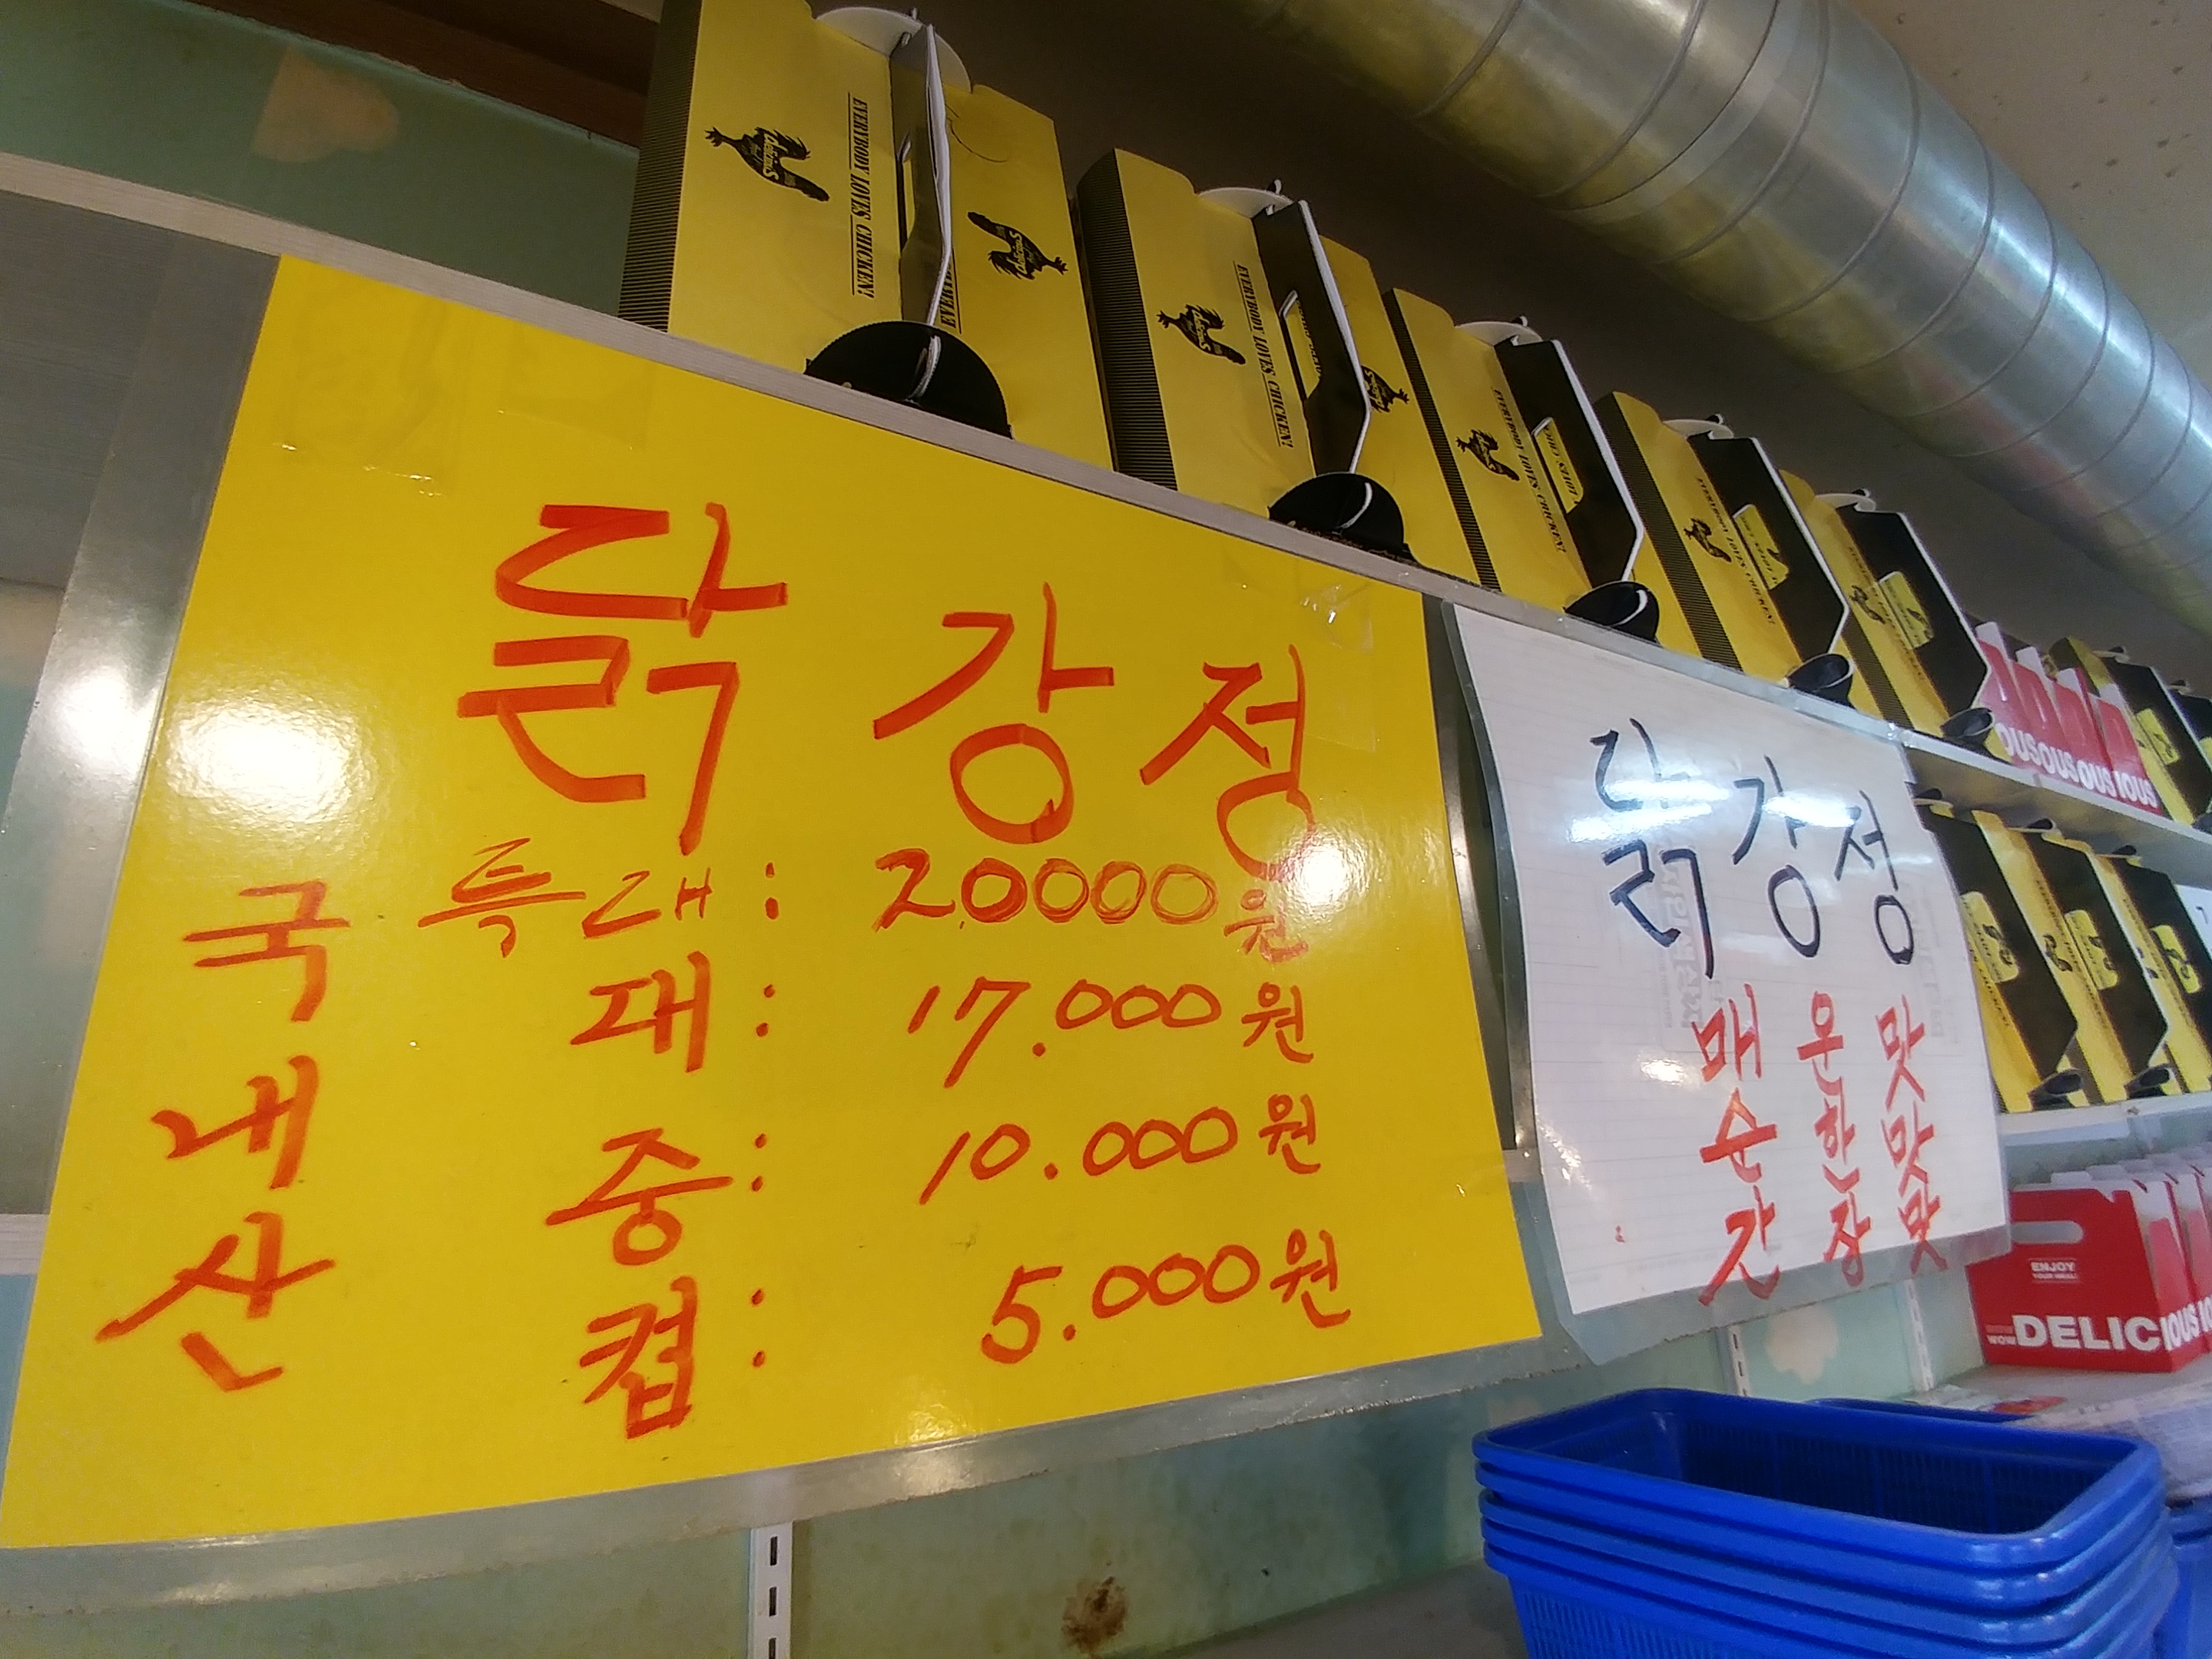 닭강정
특대: 20000원
대: 17.000원
중: 10.000원
컵: 5.000원
국내산
닭강정
매운맛
순한맛
간장맛
EVERYBODY LOVES CHICKEN!
EVERYBODY LOVES CHICKEN!
EVERYBODY LOVES CHICKEN!
EVERYBODY LOVES CHICKEN!
ENJOY
YOUR MEAL!
WOW DELICIOUS